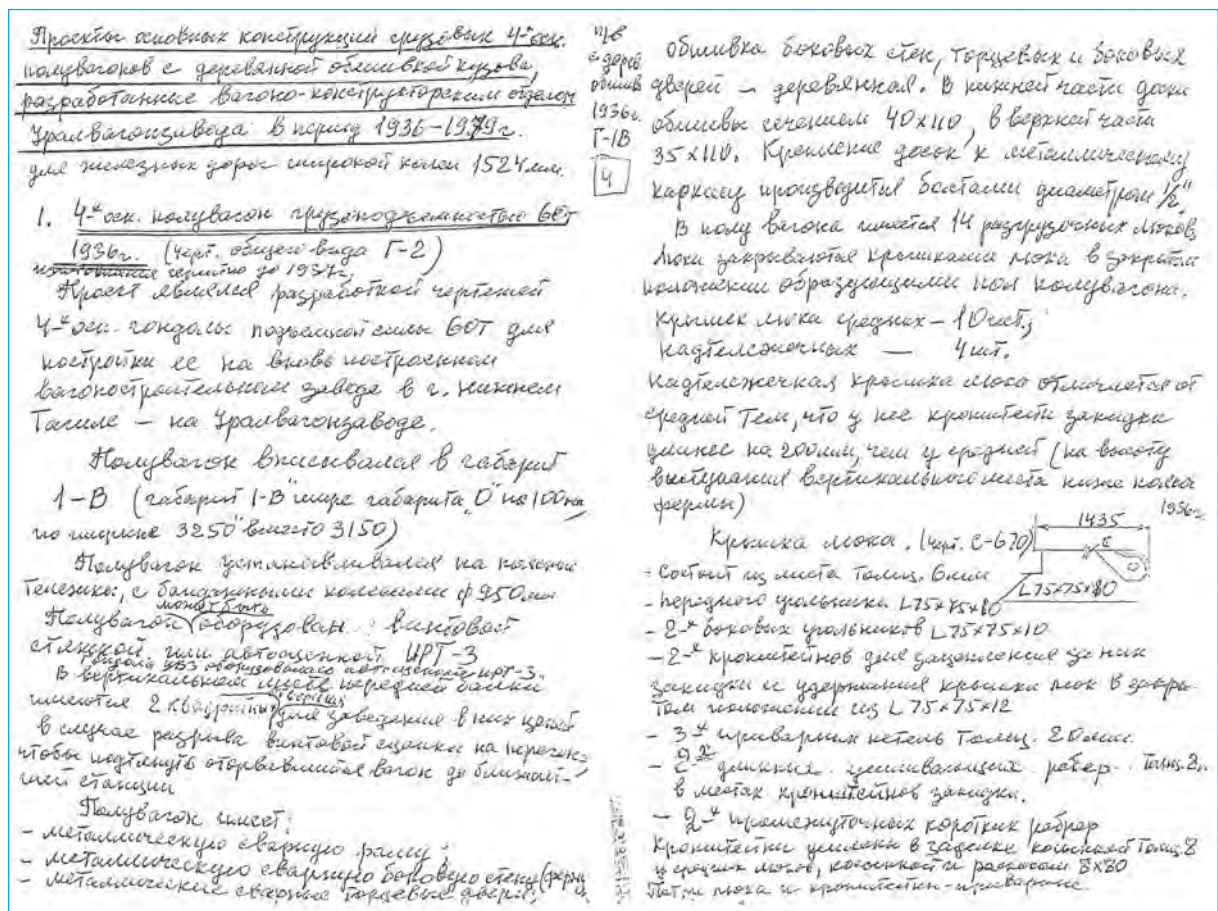 Проекты основных конструкций грузовых 4-х осн.
полувагонов с деревянной обшивкой кузова,
разработанные вагоно-конструкторским отделом
Уралвагонзавода в период 1936-1979 г.
для железных дорог широкой колеи 1524 мм.
1. 4-х осн. полувагон грузоподъемностью 60т
1936г. (черт. общего вида Г-2)
серийно до 1937г.
Проект являлся разработкой чертежей
4-х осн. гондолы подъемной силы 60т для
постройки ее на вновь построенном
вагоностроительном заводе в г. Нижнем
Тагиле — на Уралвагонзаводе.
Полувагон вписывался в габарит
1-В (габарит 1-В шире габарита "0" на 100 мм
по ширине 3250 вместо 3150)
Полувагон устанавливался на поясной
тележке, с бандажными колесами ф 950 мм
может быть
Полувагон оборудован винтовой
стяжкой или автосцепкой ИРТ-3
Гондола УВЗ оборудовалась автосцепкой ИРТ-3.
В вертикальном листе передней балки
имеются 2 квадратных отверстия для заведения в них цепей
в случае разрыва винтовой сцепки на перегоне,
чтобы подтянуть оторвавшийся вагон до ближай-
шей станции
Полувагон имеет:
- металлическую сварную раму;
- металлическую сварную боковую стену (ферму)
- металлические сварные торцевые двери;
п/в
с дерев
обшив
1936г.
Г-1В
4
обшивка боковых стен, торцевых и боковых
дверей — деревянная. В нижней части доски
обшивы сечением 40х110, в верхней части
35х110. Крепление досок к металлическому
каркасу производится болтами диаметром 1/2".
В полу вагона имеется 14 разгрузочных люков.
Люки закрываются крышками люка в закрытом
положении образующими пол полувагона.
Крышек люка средних — 10 шт.;
надтележечных — 4 шт.
Надтележечная крышка люка отличается от
средней тем, что у нее кронштейн закидки
длиннее на 200мм, чем у средней (на высоту
выступания вертикального листа ниже пояса
фермы)
1936г.
1435
Крышка люка. (черт. С-670)
- Состоит из листа толщ. 6мм
L75х75х80
- переднего угольника L75х75х80
- 2-х боковых угольников L75х75х10
- 2-х кронштейнов для зацепления за них
закидки и удержания крышки люк в закры-
том положении из L 75х75х12
- 3-х приварных петель толщ. 20мм.
- 2-х длинных усиливающих ребер толщ. 8
в местах кронштейнов закидки.
- 2-х промежуточных коротких ребрар
Кронштейны усилены в заделке косынкой толщ. 8
у средних люков, косынкой и раскосом 8х80
Петли люка и кронштейны - приварные.